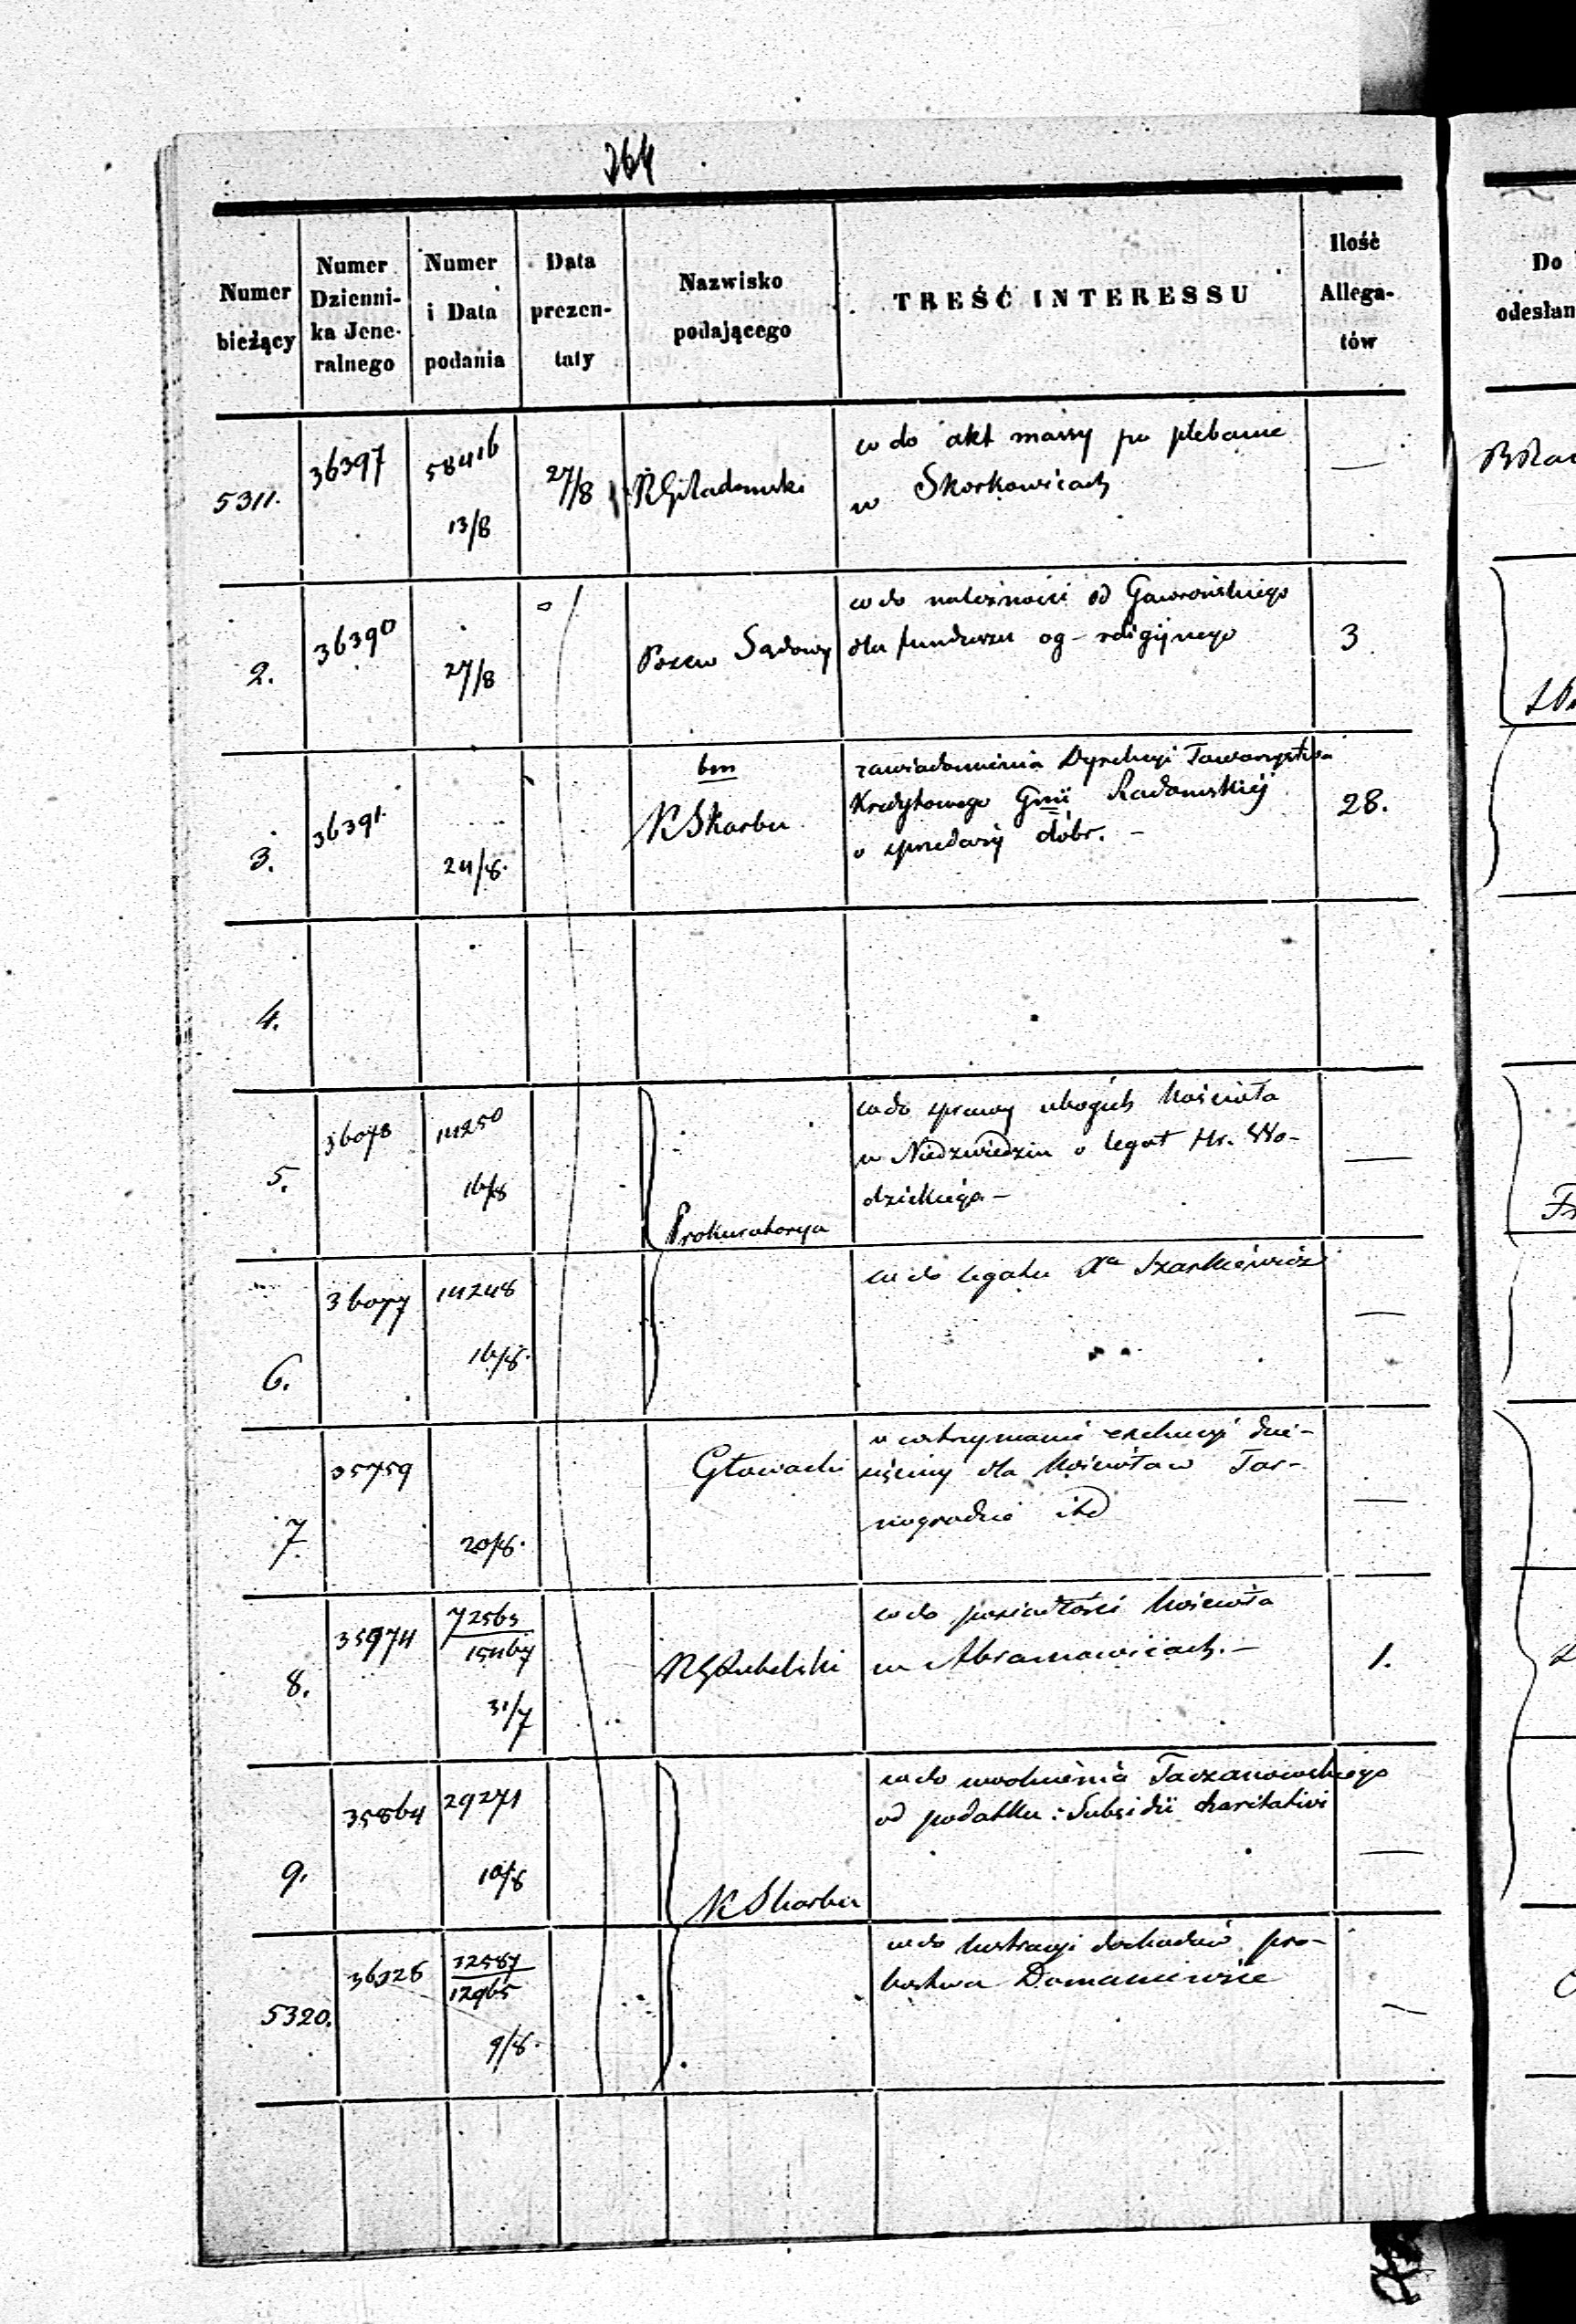 264
Numer bieżący
Numer Dzienni-ka Jene-ralnego
Numer i Data podania
Data prezen-taty
Nazwisko podającego
TREŚĆ INTERESSU
Ilość Allega-tów
Do
odesłan
5311.
36397
58416
13/8
27/8
RGRadomski
co do akt massy po plebanie
w Skorkowicach
—
2.
36390
27/8
Pozew Sądowy
co do należności od Gaworońskiego
dla funduszu og- religijnego
3
3.
36391.
24/8.
KSkarbu
zawiadomienia Dyrekcyi Towarzystwa
Kredytowego Gnii Radomskiej
o sprzedaży dóbr. —
28.
4.
5.
36078
14250
16/8
Prokuratorya
co do sprawy ubogich kościoła
w Niedzwiedziu o legat Hr. Wo-
dzickiego —
—
6.
36077
14248
16/8.
co do legatu Xa Szarkiewicz
—
7.
35759
20/8.
Głowacki
o wstrzymanie exekucyi dzie-
sięciny dla kościoła w Tar-
nogrodzie itd
—
8.
35974
72565
15467
31/7
RGLubelski
co do posiadłości kościoła
w Abramowicach. —
1.
9.
35864
29271
10/8
KSkarbu
co do uwolnienia Taczanowskiego
od podatku: Subsidii charitativi
—
5320.
36328
32587
12965
9/8.
co do lustracyi dochodów pro-
bostwa Domaniewice
—